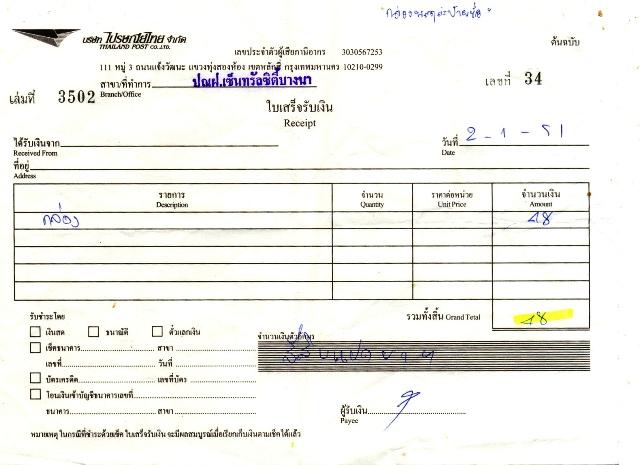 บริษัท ไปรษณีย์ไทย จำกัด
THAILAND POST CO.,LTD.
ต้นฉบับ
เลขประจำตัวผู้เสียภาษีอากร 3030567253
111 หมู่ 3 ถนนแจ้งวัฒนะ แขวงทุ่งสองห้อง เขตหลักสี่ กรุงเทพมหานคร 10210-0299
เล่มที่ 3502 สาขา/ที่ทำการ ปณฝ.เซ็นทรัลซิตี้บางนา เลขที่ 34
Branch/Office
ใบเสร็จรับเงิน
Receipt
ได้รับเงินจาก วันที่ 2-1-51
Received From Date
ที่อยู่
Address
รายการ จำนวน ราคาต่อหน่วย จำนวนเงิน
Description Quantity Unit Price Amount
กล่อง 48
รวมทั้งสิ้น Grand Total 48
รับชำระโดย
เงินสด ธนาณัติ ตั๋วแลกเงิน
จำนวนเงินตัวอักษร
เช็คธนาคาร สาขา
เลขที่ วันที่
บัตรเครดิต เลขที่บัตร
โอนเงินเข้าบัญชีธนาคารเลขที่
ธนาคาร สาขา
ผู้รับเงิน
Payee
หมายเหตุ ในกรณีที่ชำระด้วยเช็ค ใบเสร็จรับเงิน จะมีผลสมบูรณ์เมื่อเรียกเก็บเงินตามเช็คได้แล้ว